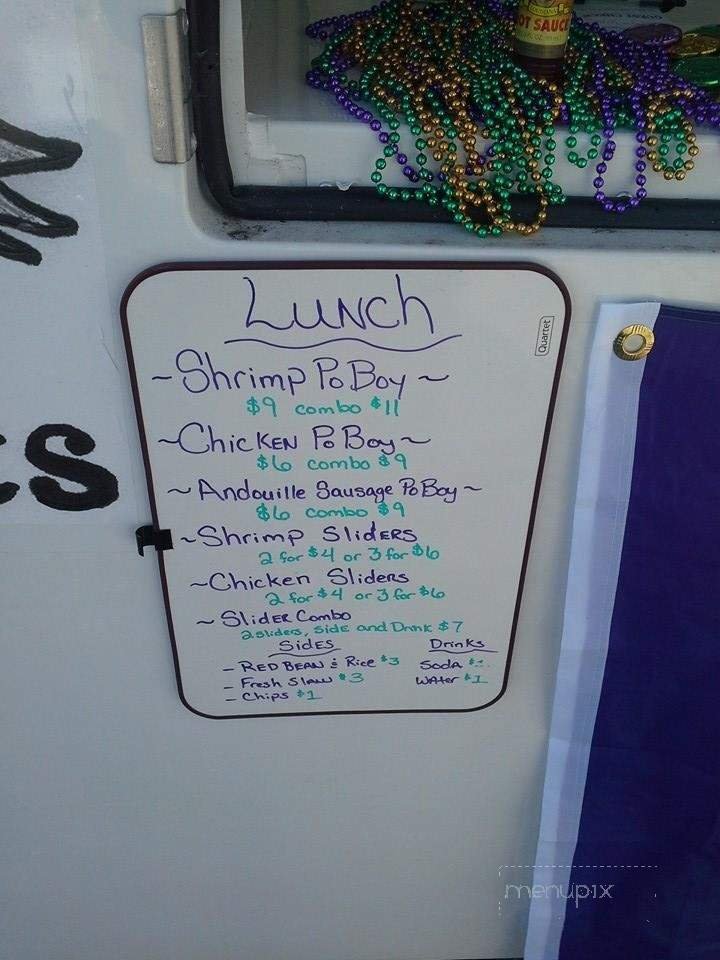 OT SAUCE
Lunch
Quartet
~Shrimp Po Boy~
$9 combo $11
~Chicken Po Boy~
$6 combo $9
~Andouille Sausage Po Boy~
$6 combo $9
~Shrimp Sliders
2 for $4 or 3 for $6
~Chicken Sliders
2 for $4 or 3 for $6
~Slider Combo
2 sliders, side and Drink $7
Sides
Drinks
- Red Bean & Rice $3
Soda
- Fresh Slaw $3
Water $1
- Chips $1
ES
menupix